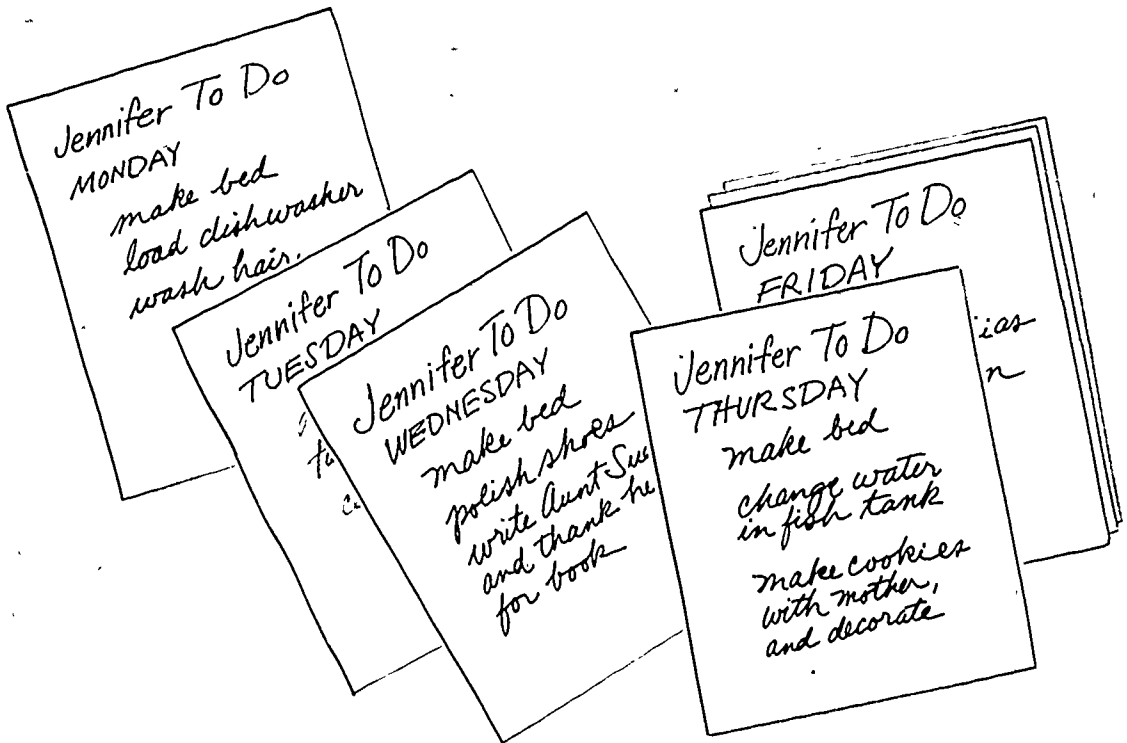 Jennifer To Do
MONDAY
make bed
load dishwasher
wash hair.
Jennifer To Do
TUESDAY
Jennifer To Do
WEDNESDAY
make bed
polish shoes
write Aunt Sue
and thank he
for book
Jennifer To Do
THURSDAY
make bed
change water
in fish tank
make cookies
with mother,
and decorate
Jennifer To Do
FRIDAY
ias
n